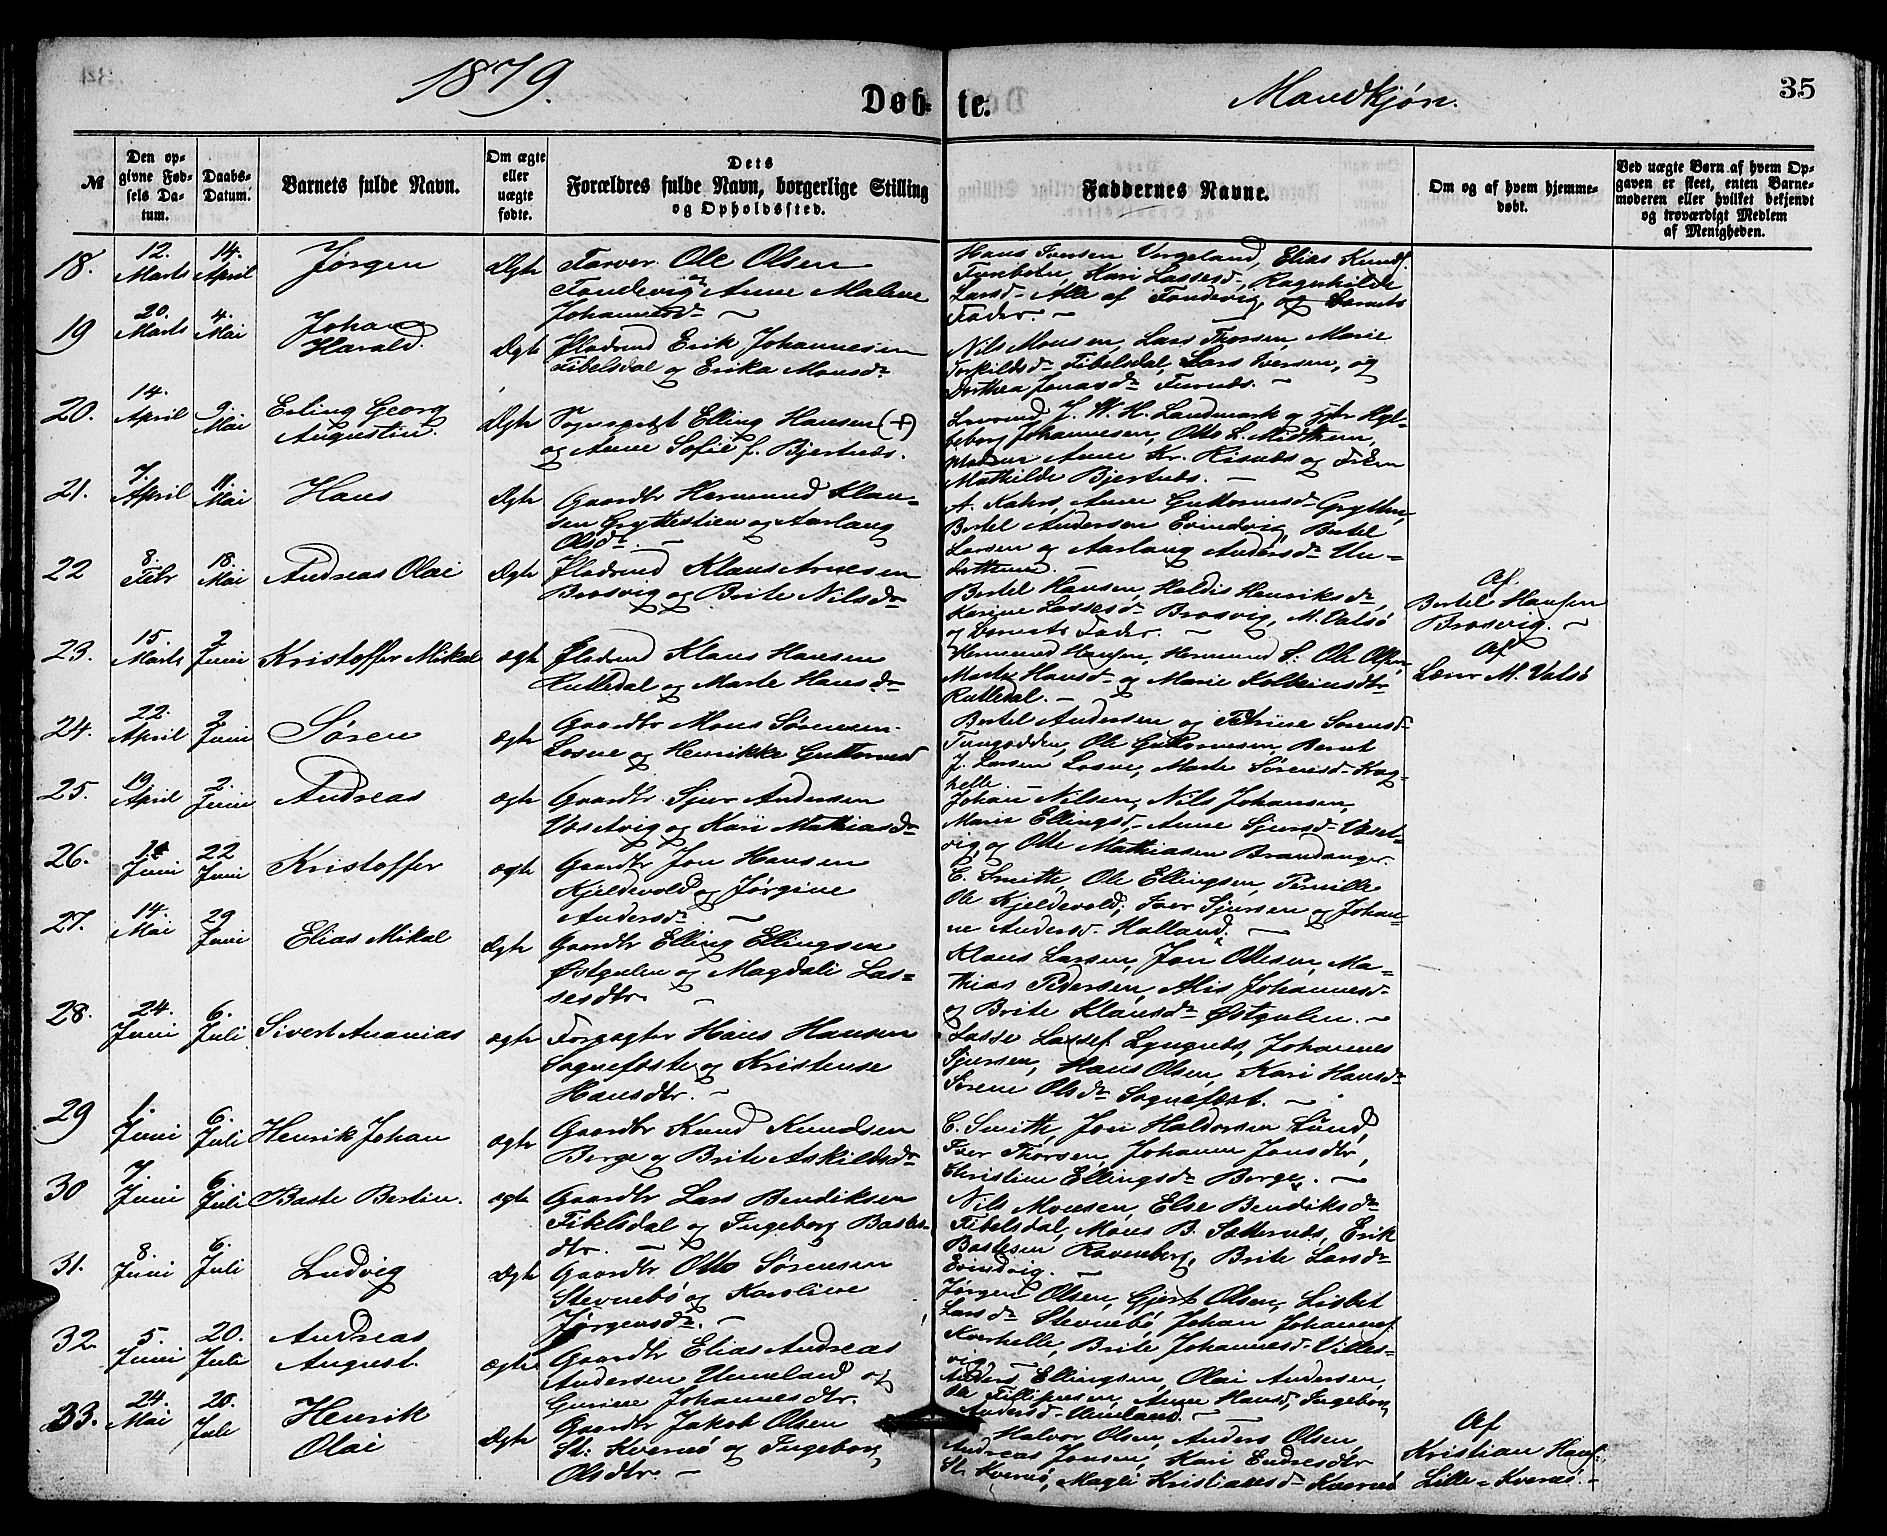 1879.
Døb-
te.
Mandkjøn.
35
№
Den op-
givne Fød-
sels Da-
tum.
Daabs-
Datum.
Barnets fulde Navn.
Om ægte
eller
uægte
fødte.
Dets
Forældres fulde Navn, borgerlige Stilling
og Opholdssted.
Faddernes Navne.
Om og af hvem hjemme-
døbt.
Ved uægte Børn af hvem Op-
gaven er skeet, enten Barne-
moderen eller hvilket bekjendt
og troværdigt Medlem
af Menigheden.
18.
12.
Marts
14.
April
Jørgen
Ægte
Farver Ole Olsen
Fondevig og Anne Malene
Johannesdr
Hans Iversen Vergeland, Elias Knuds.
Tunebotn, Kari Lassesd., Ragnhilde
Larsd. Alle af Fondevig, og Barnets
Fader.
19
20.
Marts
4.
Mai
Johan
Harald.
Ægte
Pladsmd Erik Johannesen
Tibelsdal og Erika Monsdr
Nils Monsen, Lars Thorsen, Marie
Torkildsdr Tibelsdal, Lars Iversen, og
Dorthea Jonasdr Furnæs.
20.
14.
April
9.
Mai
Erling Georg
Augustin.
Ægte
Sogneprest Elling Hansen (+)
og Anne Sofie f. Bjertnæs.
Lensmd J. W. H. Landmark og Hgl-
beborg Johannesen, Otto L. Midthun,
Madam Anne Kr. Risnæs og Frkn
Mathilde Bjertnæs.
21.
7.
April
11.
Mai
Hans
Ægte
Gaardbr Hermund Klau-
sen Gryttestien og Aarlaug
Olsdr.
A. Kahrs, Anne Guttormsd. Grytten,
Bertel Andersen Evindvig, Bertel
Larsen og Aarlaug Andersdr Un-
dertun.
22
8.
Febr
18.
Mai
Andreas Olai
Ægte
Pladsmd Klaus Arnesen
Brosvig og Brite Nilsdr
Bertel Hansen, Haldis Henriksdr,
Karine Lassesdr Brosvig, M. Vatsø
og Barnets Fader.
Af
Bertel Hansen
Brosvig.
23.
15.
Marts
2
Juni
Kristoffer Mikal
ægte
Pladsmd Klaus Hansen
Rutledal og Marte Hansdr
Hermund Hansen, Hermund S: Ole Olsen,
Marte Hansd. og Marie Kolbeinsdtr
Rutledal.
Af
Lærer M. Vatsø
24.
22.
April
2
Juni
Søren
ægte
Gaardbr Mons Sørensen
Losne og Henrikke Guttormsd
Bertel Andersen og Petrine Sørensd.
Tungodden, Ole Guttormsen, Bernt
J. Larsen Losne, Marte Sørensd. Krag-
helle.
25.
19
April
2.
Juni
Andreas
ægte
Gaardbr. Sjur Andersen
Vesetvig og Kari Mathiasdr
Johan Nilsen, Nils Johansen,
Marie Ellingsd., Anne Sjursd. Veset-
vig og Ole Mathiasen Brandanger.
26.
Juni
22
Juni
Kristoffer
ægte
Gaardbr Jon Hansen
Kjeldevold og Jørgine
Andersdr
C. Smith, Ole Ellingsen, Pernille
Ole Kjeldevold, Iver Sjursen og Johan-
ne Andersd. Halland.
27.
14.
Mai
29
Juni
Elias Mikal
Ægte
Gaardbr Elling Ellingsen
Østgulen og Magdali Las-
sesdtr
Klaus Larsen, Jon Olsen, Ma-
thias Pedersen, Alis Johannesd.
og Brite Klausdr Østgulen.
28.
24.
Juni
6.
Juli
Sivert Ananias
ægte
Forpagter Hans Hansen
Sognefeste og Kristense
Hansdtr.
Lasse Lassen Lyngnæs, Johannes
Sjursen, Hans Olsen, Kari Hansdr
Serene Olsdr Sognefest.
29
1.
Juni
6.
Juli
Henrik Johan
ægte
Gaardbr Knud Knudsen
Berge og Brite Askildsdr
C. Smith, Jon Haldorsen Lund,
Iver Thorsen, Johanne Jonsdtr,
Christine Ellingsdr Berge.
30
7.
Juni
6.
Juli
Baste Bertin.
ægte
Gaardbr Lars Bendiksen
Tibelsdal og Ingeborg Bastes-
dtr.
Nils Monsen, Else Bendiksdr
Tibelsdal, Mons B. Sætternæs, Erik
Bastesen Ravneberg, Brite Larsdr
Evindvig.
31.
8.
Juni
6.
Juli
Ludvig
Ægte
Gaardbr Otto Sørensen
Stevnebø og Karoline
Jørgensdr.
Jørgen Olsen, Gjert Olsen, Lisbet
Larsdr Stevnebø, Johan Johannes.
Kverhelle, Brite Johannesd. Villes-
vig
32.
5.
Juni
20.
Juli
Andreas
August.
ægte
Gaardbr Elias Andreas
Andersen Unneland og
Gurine Johannesdtr.
Anders Ellingsen, Olai Andersen,
Ole Fillipusen, Anne Hansd., Ingeborg
Andersd. Unneland.
33.
24.
Mai
20.
Juli
Henrik
Olai
Ægte
Gaardbr Jakob Olsen
St: Kvernø og Ingeborg
Olsdtr.
Halvor Olsen, Anders Olsen,
Andreas Jonsen, Kari Endresdtr
St. Kvernø, Magli Kristiansd. Kvernø
Af
Kristian Hans.
Lille-Kvernø.